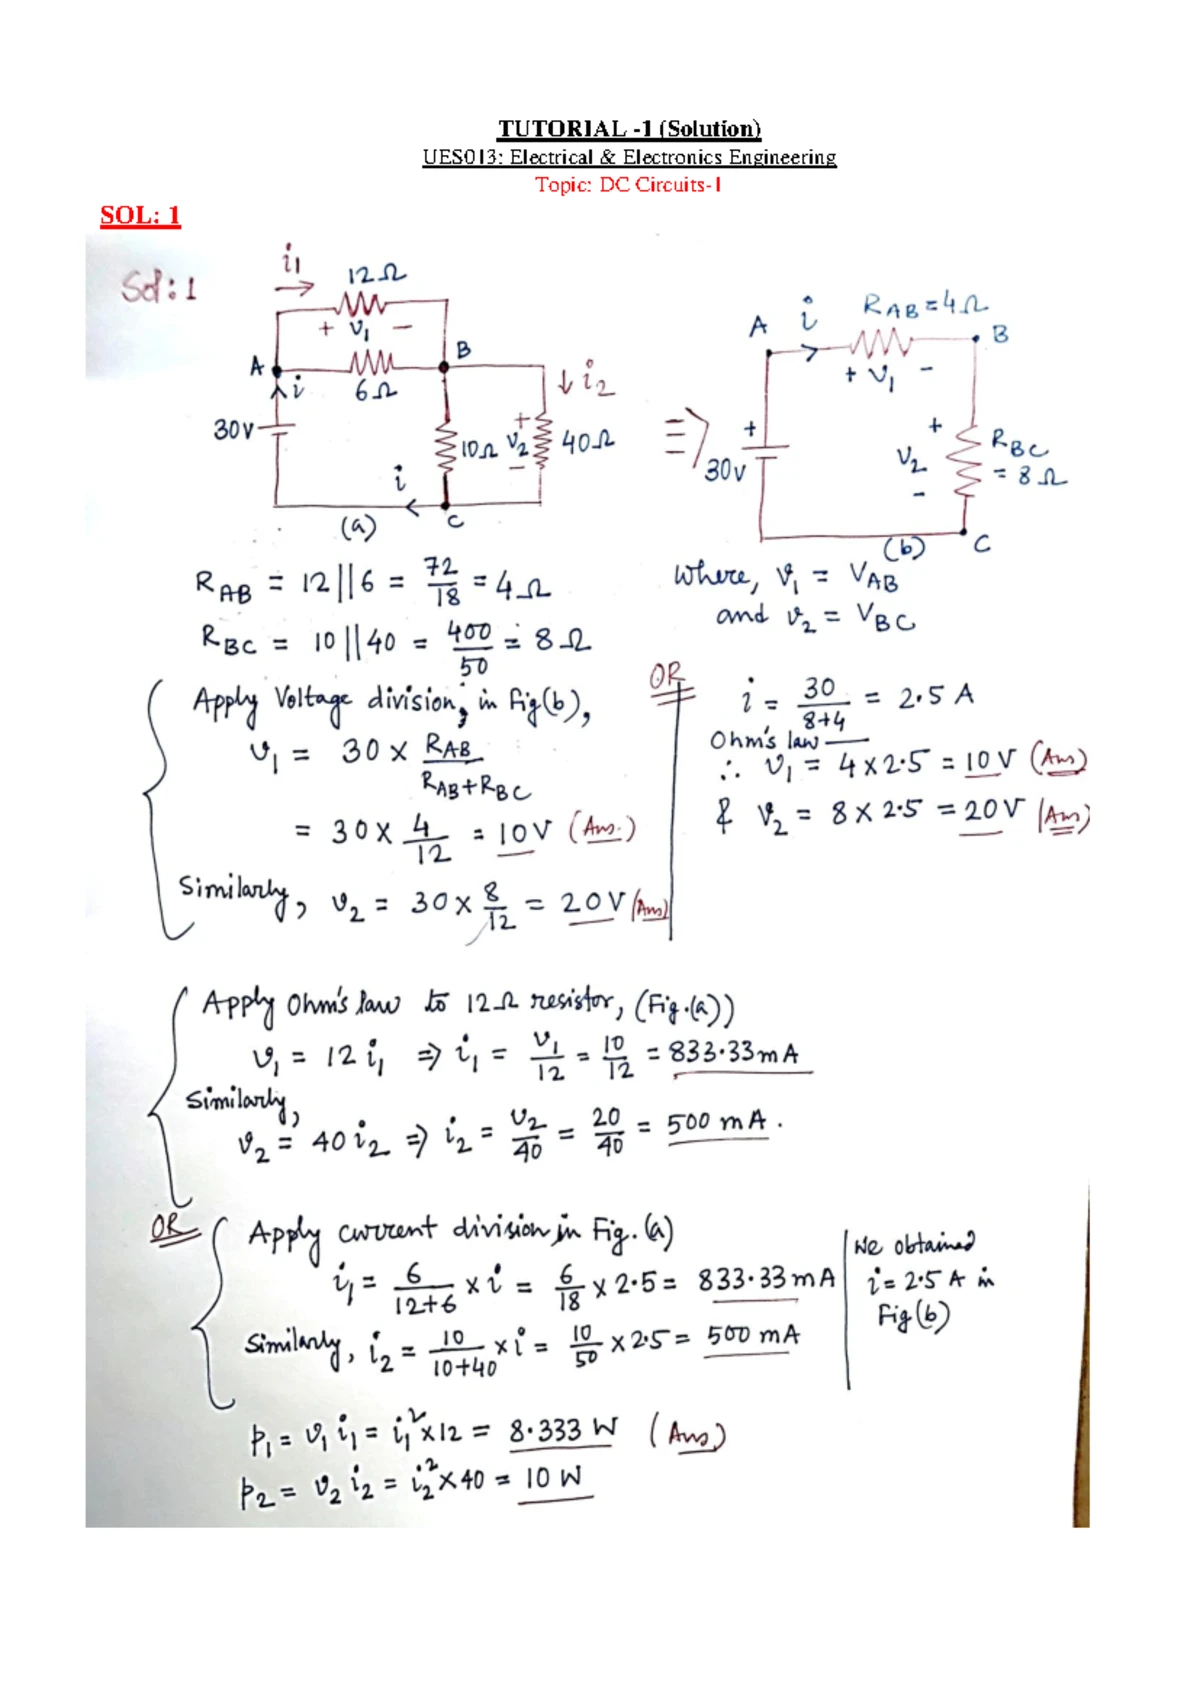 TUTORIAL -1 (Solution)
UES013: Electrical & Electronics Engineering
Topic: DC Circuits-1
SOL: 1
Sol:1
i1
12Ω
+ v1 −
A
B
i
6Ω
↓ i2
30V
10Ω
+ v2 −
40Ω
i
(a)
C
⇒
A
i
RAB = 4Ω
B
+ v1 −
+
30V
+ v2 −
RBC = 8Ω
(b)
C
RAB = 12||6 = 72/18 = 4Ω
RBC = 10||40 = 400/50 = 8Ω
where, v1 = VAB
and v2 = VBC
Apply Voltage division, in fig(b),
v1 = 30 × RAB/(RAB+RBC)
= 30 × 4/12 = 10V (Ans.)
Similarly, v2 = 30 × 8/12 = 20V (Ans)
OR
i = 30/(8+4) = 2.5 A
Ohm's law
∴ v1 = 4×2.5 = 10V (Ans)
& v2 = 8×2.5 = 20V (Ans)
Apply Ohm's law to 12Ω resistor, (Fig.(a))
v1 = 12 i1 ⇒ i1 = v1/12 = 10/12 = 833.33mA
Similarly,
v2 = 40 i2 ⇒ i2 = v2/40 = 20/40 = 500 mA.
OR
Apply current division in Fig.(a)
i1 = 6/(12+6) × i = 6/18 × 2.5 = 833.33mA
Similarly, i2 = 10/(10+40) × i = 10/50 × 2.5 = 500 mA
We obtained
i = 2.5 A in
Fig(b)
p1 = v1 i1 = i1² × 12 = 8.333 W (Ans)
p2 = v2 i2 = i2² × 40 = 10 W